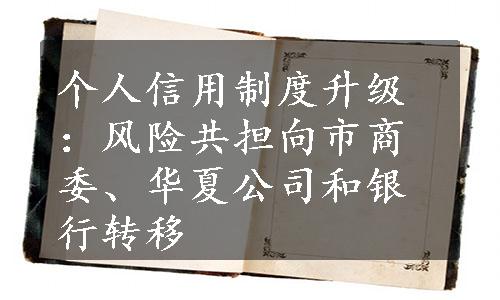 个人信用制度升级
：风险共担向市商
委、华夏公司和银
行转移